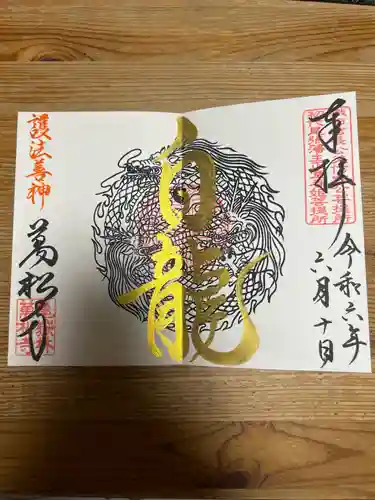 奉拝
令和六年
六月十日
白龍
護法善神
萬松寺